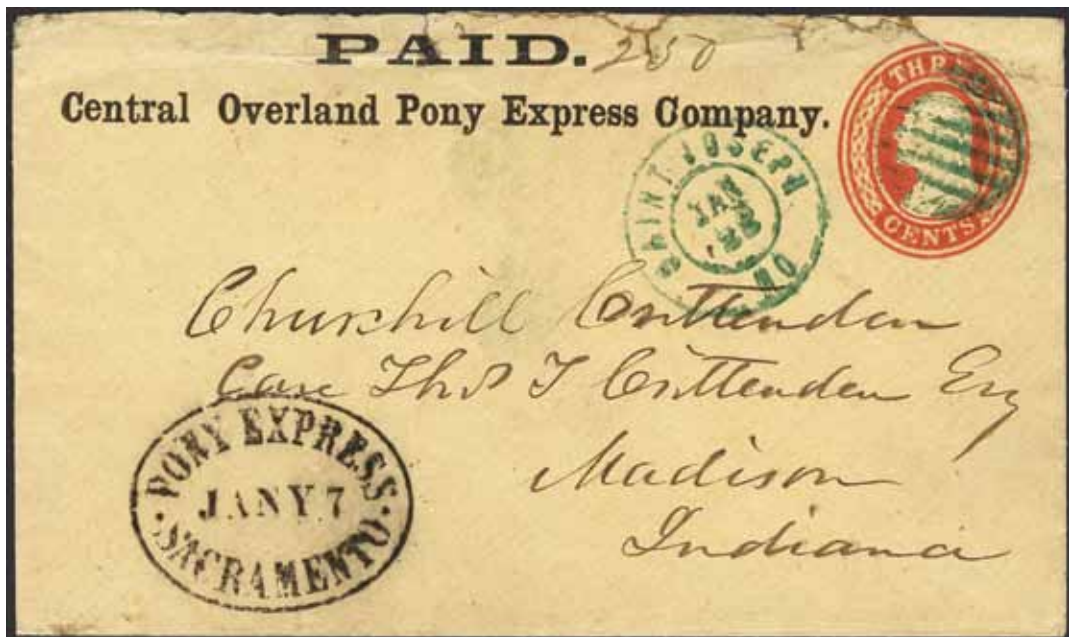 PAID. 250
Central Overland Pony Express Company.
THREE
CENTS
SAINT JOSEPH.
JAN
22
MO
Churchill Crittenden
Care Thos T Crittenden Esq
Madison
Indiana
PONY EXPRESS
JANY 7
SACRAMENTO